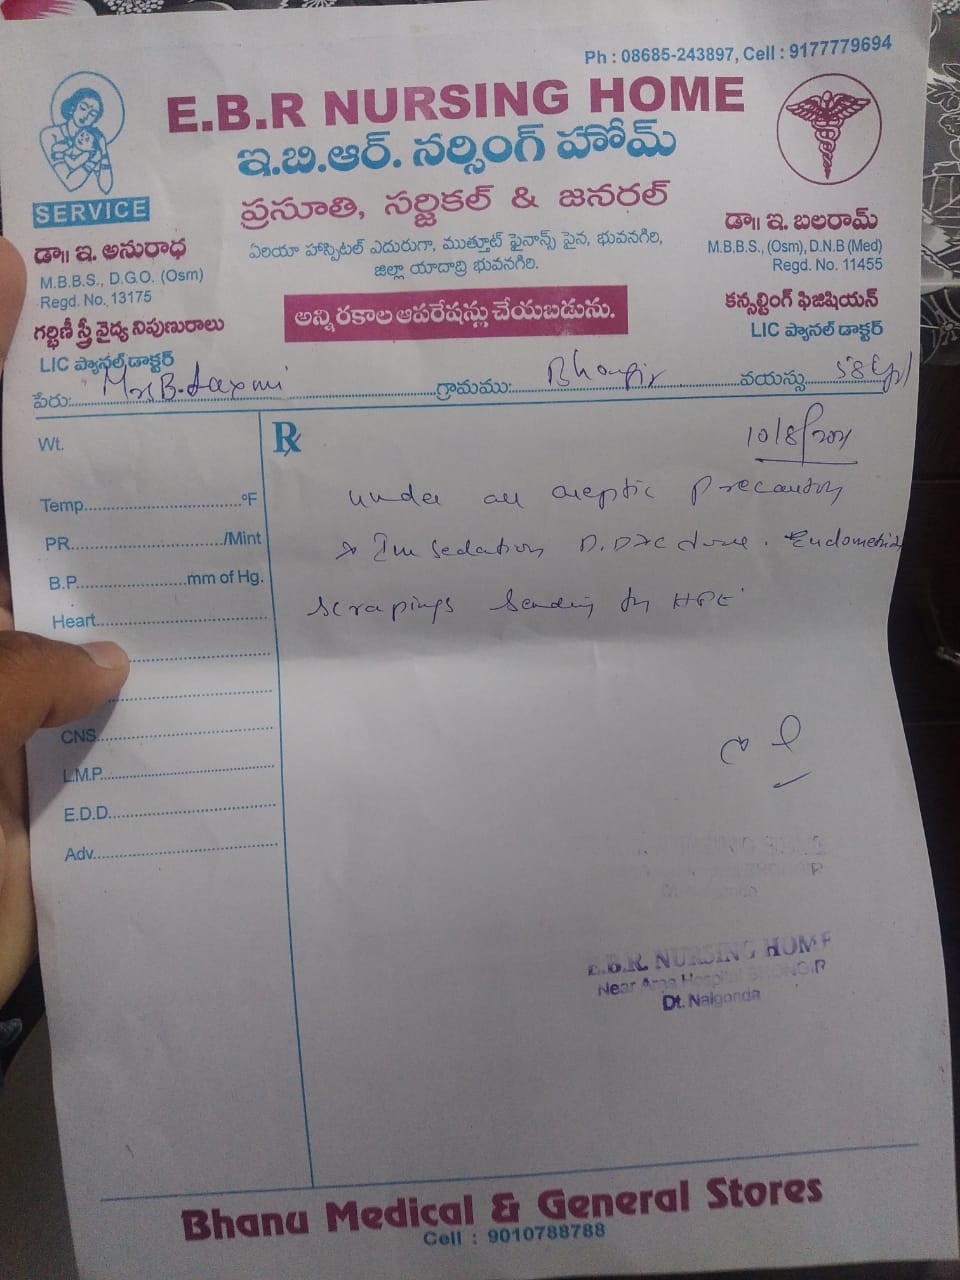 Ph : 08685-243897, Cell : 9177779694
E.B.R NURSING HOME
ఇ.బి.ఆర్. నర్సింగ్ హోమ్
ప్రసూతి, సర్జికల్ & జనరల్
ఏరియా హాస్పిటల్ ఎదురుగా, ముత్తూట్ ఫైనాన్స్ పైన, భువనగిరి,
జిల్లా యాదాద్రి భువనగిరి.
అన్ని రకాల ఆపరేషన్లు చేయబడును.
SERVICE
డా॥ ఇ. అనురాధ
M.B.B.S., D.G.O. (Osm)
Regd. No. 13175
గర్భిణీ స్త్రీ వైద్య నిపుణురాలు
LIC ప్యానల్ డాక్టర్
డా॥ ఇ. బలరామ్
M.B.B.S., (Osm), D.N.B (Med)
Regd. No. 11455
కన్సల్టింగ్ ఫిజిషియన్
LIC ప్యానల్ డాక్టర్
పేరు: Mrs B. Laxmi గ్రామము: Bhongir వయస్సు 58
Wt.
Temp. °F
PR. /Mint
B.P. mm of Hg.
Heart
CNS
L.M.P.
E.D.D.
Adv.
Rx
10/8/2021
under all aseptic precautions
sedation D.D&C done. Endometrial
scrapings sending for HPE
E.B.R. NURSING HOME
Near Area Hospital BHONGIR
Dt. Nalgonda
Bhanu Medical & General Stores
Cell : 9010788788